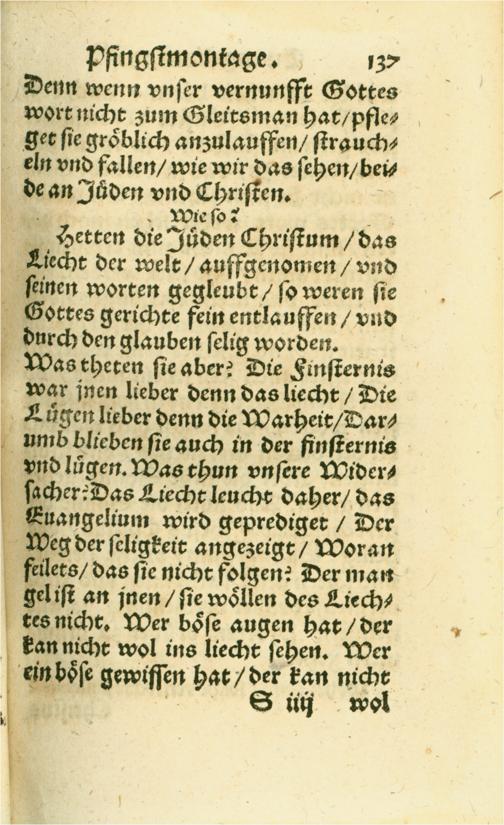 Pfingstmontage. 137
Denn wenn vnser vernunfft Gottes
wort nicht zum Gleitsman hat/pfle⸗
get sie gröblich anzulauffen/ strauch⸗
eln vnd fallen/ wie wir das sehen/bei⸗
de an Jüden vnd Christen.
Wie so?
Hetten die Jüden Christum/das
Liecht der welt/ auffgenomen/ vnd
seinen worten gegleubt/ so weren sie
Gottes gerichte fein entlauffen/ vnd
durch den glauben selig worden.
Was theten sie aber? Die Finsternis
war jnen lieber denn das liecht/ Die
Lügen lieber denn die Warheit/Dar⸗
umb blieben sie auch in der finsternis
vnd lügen. Was thun vnsere Wider⸗
sacher? Das Liecht leucht daher/ das
Euangelium wird geprediget/ Der
Weg der seligkeit angezeigt/ Woran
feilets/ das sie nicht folgen? Der man
gel ist an jnen/ sie wöllen des Liech⸗
tes nicht. Wer böse augen hat/der
kan nicht wol ins liecht sehen. Wer
ein böse gewissen hat/der kan nicht
S iiij wol